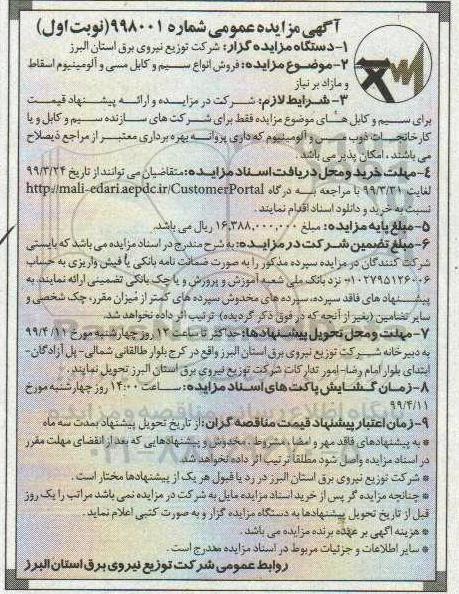 آگهی مزایده عمومی شماره ۹۹۸۰۰۱ (نوبت اول)
۱-دستگاه مزایده گزار: شرکت توزیع نیروی برق استان البرز
۲-موضوع مزایده: فروش انواع سیم و کابل مسی و آلومینیوم اسقاط
و مازاد بر نیاز
۳- شرایط لازم: شرکت در مزایده و ارائه پیشنهاد قیمت
برای سیم و کابل های موضوع مزایده فقط برای شرکت های سازنده سیم و کابل و یا
کارخانجات ذوب مس و آلومینیوم که داری پروانه بهره برداری معتبر از مراجع ذیصلاح
می باشند ، امکان پذیر می باشد .
۴-مهلت خرید و محل دریافت اسناد مزایده: متقاضیان می توانند از تاریخ ۹۹/۳/۲۴
لغایت ۹۹/۳/۳۱ با مراجعه به درگاه http://mali-edari.aepdc.ir/CustomerPortal
نسبت به خرید و دانلود اسناد اقدام نمایند .
۵-مبلغ پایه مزایده: مبلغ ۱۶,۳۸۸,۰۰۰,۰۰۰ ریال می باشد.
۶-مبلغ تضمین شرکت در مزایده: به شرح مندرج در اسناد مزایده می باشد که بایستی
شرکت کنندگان در مزایده سپرده مذکور را به صورت ضمانت نامه بانکی یا فیش واریزی به حساب
۰۱۰۲۷۹۵۱۲۶۰۰۶ نزد بانک ملی شعبه آموزش و پرورش و یا چک بانکی تضمینی ارائه نمایند. به
پیشنهاد های فاقد سپرده، سپرده های مخدوش سپرده های کمتر از میزان مقرر، چک شخصی و
سایر تضامین (بغیر از آنچه که در فوق ذکر گردیده) ترتیب اثر داده نخواهد شد.
۷-مهلت و محل تحویل پیشنهادها: حداکثر تا ساعت ۱۲ روز چهارشنبه مورخ ۹۹/۴/۱۱
به دبیرخانه شرکت توزیع نیروی برق استان البرز واقع در کرج بلوار طالقانی شمالی- پل آزادگان-
ابتدای بلوار امام رضا-امور تدارکات شرکت توزیع نیروی برق استان البرز تحویل نمایند.
۸-زمان گشایش پاکت های اسناد مزایده: ساعت ۱۴:۰۰ روز چهارشنبه مورخ
۹۹/۴/۱۱
۹-زمان اعتبار پیشنهاد قیمت مناقصه گران: از تاریخ تحویل پیشنهاد بمدت سه ماه
* به پیشنهادهای فاقد مهر و امضا، مشروط ، مخدوش و پیشنهادهایی که بعد از انقضای مهلت مقرر
در اسناد مزایده واصل شود مطلقا ترتیب اثر داده نخواهد شد.
* شرکت توزیع نیروی برق استان البرز در رد یا قبول هر یک از پیشنهادها مختار است .
* چنانچه مزایده گر پس از خرید اسناد مزایده مایل به شرکت در مزایده نمی باشد مراتب را یک روز
قبل از تاریخ تحویل پیشنهادها به دستگاه مزایده گزار و به صورت کتبی اعلام نماید.
* هزینه آگهی بر عهده برنده مزایده می باشد .
* سایر اطلاعات و جزئیات مربوط در اسناد مزایده مندرج است .
روابط عمومی شرکت توزیع نیروی برق استان البرز